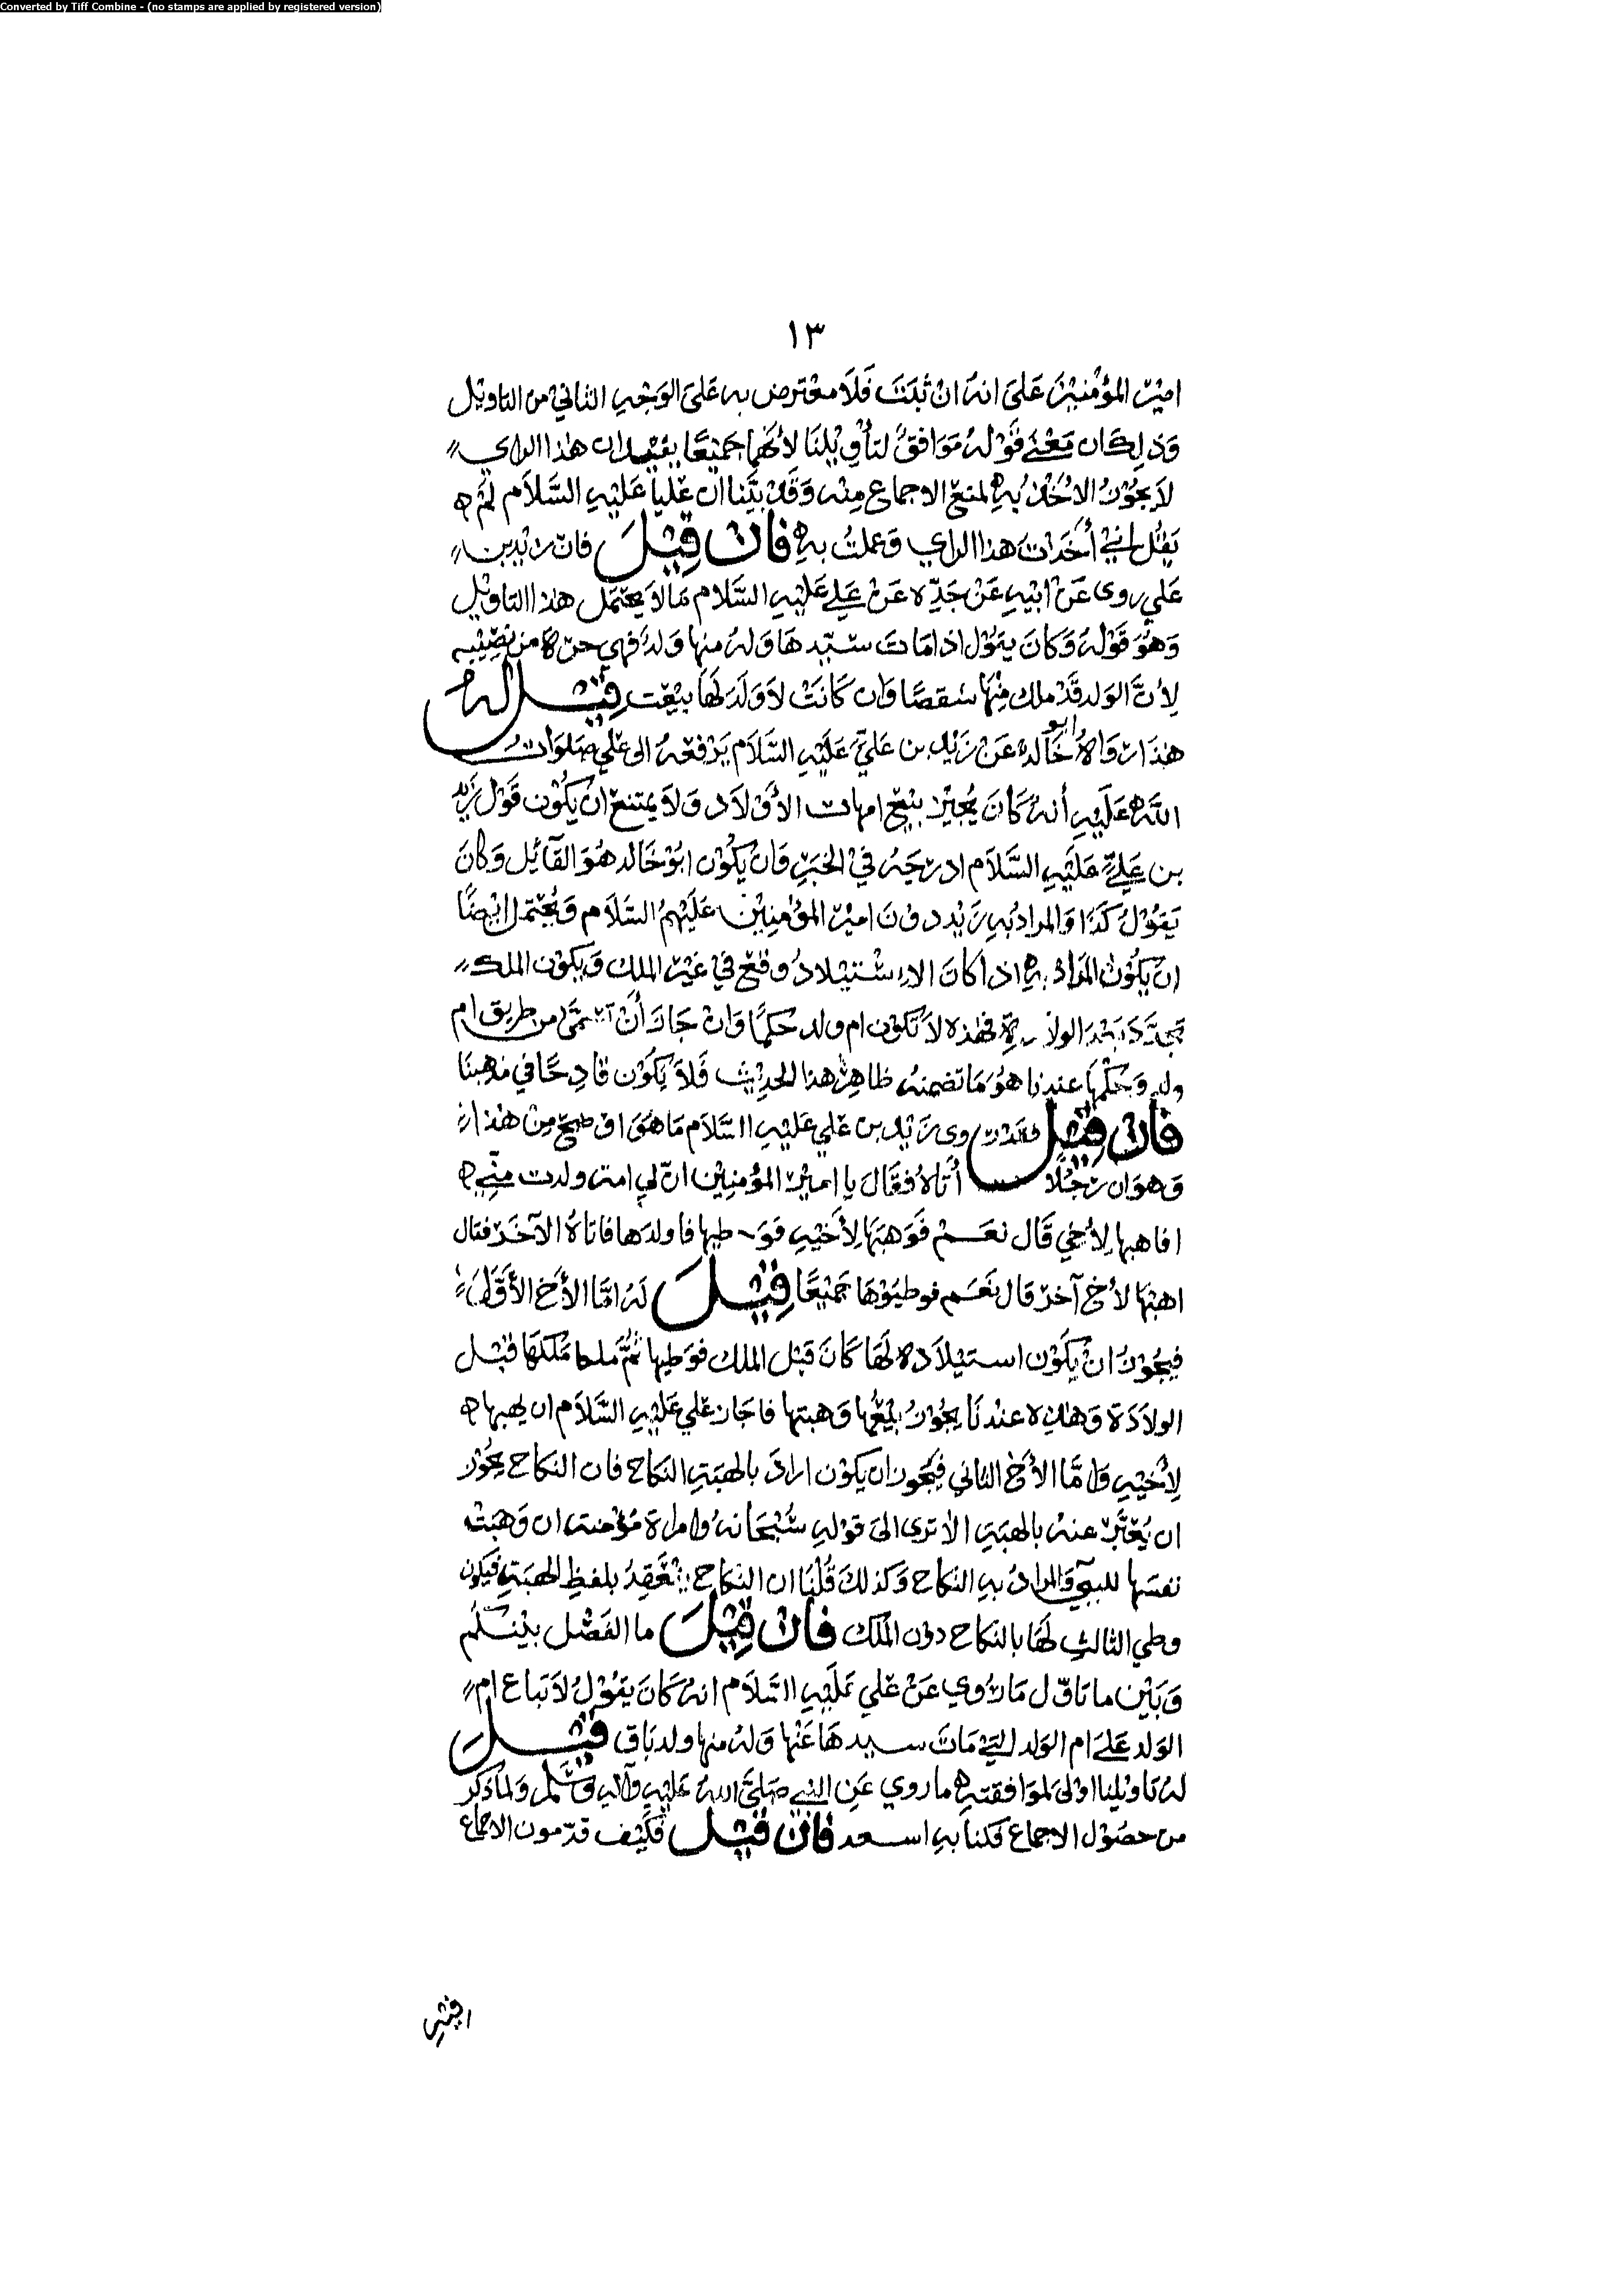 Converted by Tiff Combine - (no stamps are applied by registered version)
١٣
امير المؤمنين على انه ان ثبت فلا معترض به على الوجه الثاني من التاويل
وذلك ان معنى قوله موافق لتأويلنا لأنهما جميعا يفيدان هذا الراي
لا يجوز الاخذ به لمنع الاجماع منه وقد بيّنا ان عليا عليه السلام لم
يقل اني أخذت هذا الراي وعملت به فان قيل فان زيد بن
علي روى عن ابيه عن جدّه عن علي عليه السلام ما لا يحتمل هذا التاويل
وهو قوله وكان يقول اذا مات سيّدها وله منها ولد فهي حرّة من نصيبه
لأنّ الولد قد ملك منها شقصا وان كانت لا ولد لها بيعت قيل له
هذا رواه ابو خالد عن زيد بن علي عليه السلام يرفعه الى علي صلوات
الله عليه أنه كان يجيز بيع امهات الأولاد ولا يمتنع ان يكون قول زيد
بن علي عليه السلام ادرجه في الخبر وان يكون ابو خالد هو القآئل وكان
يقول كذا والمراد به زيد دون امير المؤمنين عليهم السلام ويحتمل ايضًا
ان يكون المراد به اذا كان الاستيلاد وقع في غير الملك ويكون الملك
تجدّد بعد الولادة فهذه لا تكون ام ولد حكمًا وان جاز أن تسمّى من طريق ام
ولد وحكمها عندنا هو ما تضمنه ظاهر هذا الحديث فلا يكون قادحًا في مذهبنا
فان قيل فقد روى زيد بن علي عليه السلام ما هو اوضح من هذا
وهو ان رجلا أتاه فقال يا امير المؤمنين انّ لي امة ولدت منّي
افاهبها لأخي قال نعم فوهبها لأخيه فوطيها فاولدها فاتاه الآخر فقال
اهبها لأخ آخر قال نعم فوطيوها جميعًا قيل له امّا الأخ الأوّل
فيجوز ان يكون استيلاده لها كان قبل الملك فوطيها ثمّ ملكها قبل
الولادة وهذه عندنا يجوز بيعها وهبتها فاجاز علي عليه السلام ان يهبها
لأخيه وامّا الأخ الثاني فيجوز ان يكون اراد بالهبة النكاح فان النكاح يجوز
ان يعبّر عنه بالهبة الا ترى الى قوله سبحانه وامراة مؤمنة ان وهبت
نفسها للنبي والمراد به النكاح وكذلك قلنا ان النكاح ينعقد بلفظ الهبة فيكون
وطي الثالث لها بالنكاح دون الملك فان قيل ما الفصل بينكم
وبين من تاوّل ما روي عن علي عليه السلام انه كان يقول لا تباع ام
الولد على ام الولد التي مات سيدها عنها وله منها ولد باق قيل
له تاويلنا اولى لموافقته ما روي عن النبي صلى الله عليه وآله وسلم ولما ذكر
من حصول الاجماع فكنا به اسعد فان قيل فكيف قدّمون الاجماع